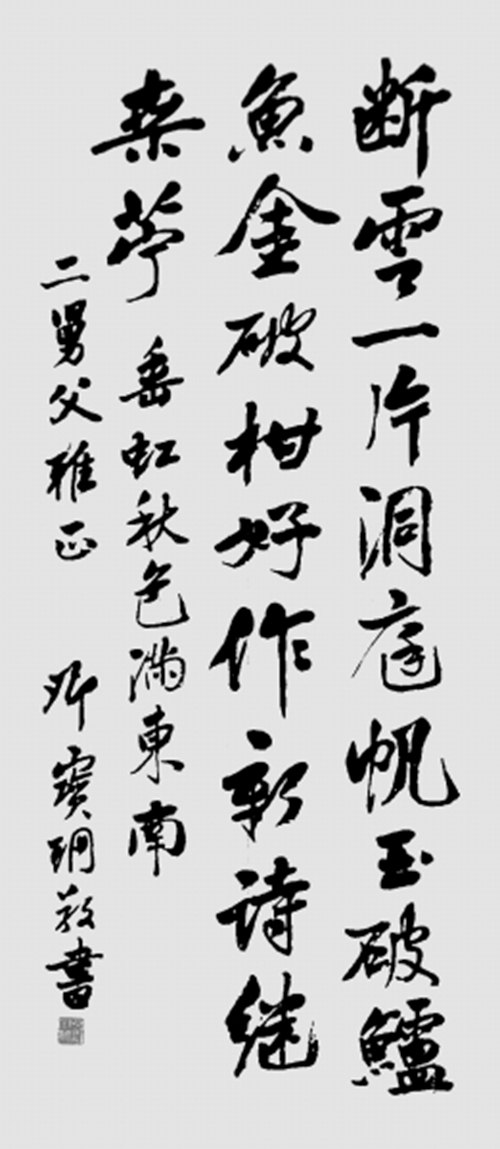 断雲一片洞庭帆玉破鱸
魚金破柑好作新詩継
桒苧 垂虹秋色滿東南
二舅父雅正 卿寶玥敬書